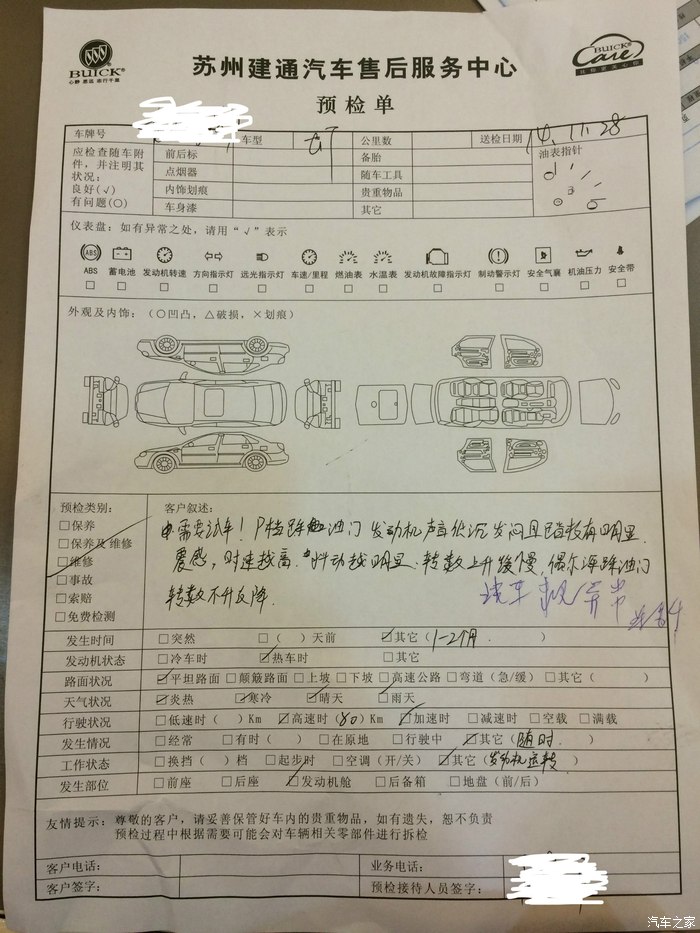 BUICK
心静 思远 志行千里
苏州建通汽车售后服务中心
BUICK
Care
预检单
车牌号 车型 GT 公里数 送检日期 14.11.28
应检查随车附件，并注明其状况：
良好(√)
有问题(○)
前后标 备胎 油表指针
点烟器 随车工具
内饰划痕 贵重物品
车身漆 其它
仪表盘：如有异常之处，请用“√”表示
ABS □ 蓄电池 □ 发动机转速 □ 方向指示灯 □ 远光指示灯 □ 车速/里程 □ 燃油表 □ 水温表 □ 发动机故障指示灯 □ 制动警示灯 □ 安全气囊 □ 机油压力 □ 安全带 □
外观及内饰：(○凹凸，△破损，×划痕)
预检类别：
□保养
□保养及维修
□维修
□事故
□索赔
□免费检测
客户叙述：
需要试车！P档踩油门 发动机声音低沉发闷且踏板有明显
震感，时速越高 抖动越明显 转数上升缓慢，偶尔深踩油门
转数不升反降.
试车 异常
发生时间 □突然 □( )天前 ☑其它(1-2个月. )
发动机状态 □冷车时 ☑热车时 □其它
路面状况 ☑平坦路面 □颠簸路面 □上坡 □下坡 □高速公路 □弯道(急/缓) □其它( )
天气状况 ☑炎热 ☑寒冷 ☑晴天 ☑雨天
行驶状况 □低速时( )Km ☑高速时(80)Km ☑加速时 □减速时 □空载 □满载
发生情况 □经常 □有时( ) □在原地 □行驶中 ☑其它(随时. )
工作状态 □换挡( )档 □起步时 □空调(开/关) ☑其它(发动机运转)
发生部位 □前座 □后座 ☑发动机舱 □后备箱 □地盘(前/后)
友情提示：尊敬的客户，请妥善保管好车内的贵重物品，如有遗失，恕不负责
预检过程中根据需要可能会对车辆相关零部件进行拆检
客户电话： 业务电话：
客户签字： 预检接待人员签字：
汽车之家